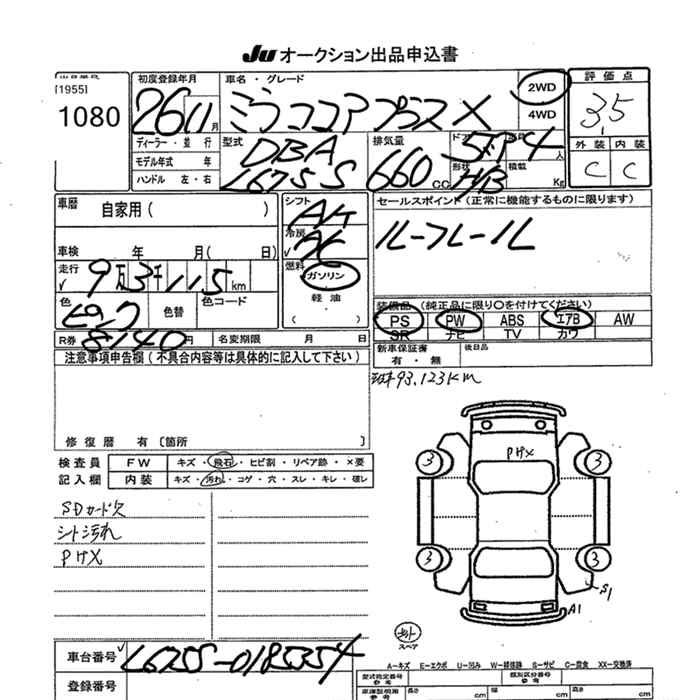 Ju オークション出品申込書
[1955]
1080
初度登録年月
26 11 月
車名・グレード
ミラココアプラスX
2WD
4WD
評価点
3.5
外装 内装
C C
ディーラー・並行
モデル年式 年
ハンドル 左・右
型式
DBA
L675S
排気量
660 cc
5 4人
形状
H/B
積載
Kg
車歴
自家用( )
車検 年 月( 日)
走行
9万3千115km
色
ピンク
色替
色コード
R券 8140円
名変期限 月 日
シフト
AT
冷房
AC
燃料
ガソリン
軽油
( )
セールスポイント(正常に機能するものに限ります)
ルーフレール
装備品(純正品に限り○を付けてください)
PS PW ABS エアB AW
SR ナビ TV カワ
新車保証書
有・無
後日品
93,123km
注意事項申告欄(不具合内容等は具体的に記入して下さい)
修復歴 有〔箇所
検査員
記入欄
FW キズ・飛石・ヒビ割・リペア跡・×要
内装 キズ・汚れ・コゲ・穴・スレ・キレ・破レ
SDカード欠
シート汚れ
PケX
PケX
3 3
3 3
S1
A1
スペア
車台番号
登録番号
A-キズ E-エクボ U-凹み W-補修跡 S-サビ C-腐食 XX-交換済
型式指定番号
類別区分番号
長さ cm 幅 cm 高さ cm